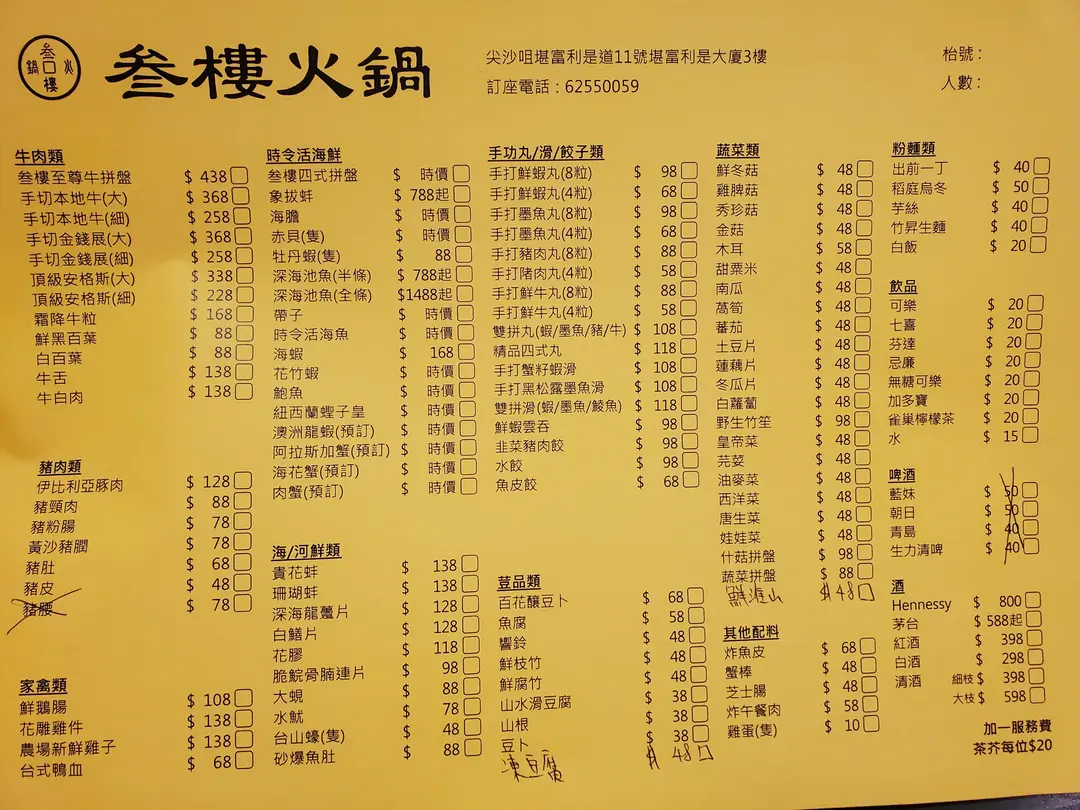 叁樓火鍋
叁樓火鍋
尖沙咀堪富利是道11號堪富利是大廈3樓
訂座電話：62550059
枱號：
人數：
牛肉類
叁樓至尊牛拼盤 $ 438
手切本地牛(大) $ 368
手切本地牛(細) $ 258
手切金錢展(大) $ 368
手切金錢展(細) $ 258
頂級安格斯(大) $ 338
頂級安格斯(細) $ 228
霜降牛粒 $ 168
鮮黑百葉 $ 88
白百葉 $ 88
牛舌 $ 138
牛白肉 $ 138
豬肉類
伊比利亞豚肉 $ 128
豬頸肉 $ 88
豬粉腸 $ 78
黃沙豬膶 $ 78
豬肚 $ 68
豬皮 $ 48
豬腰 $ 78
家禽類
鮮鵝腸 $ 108
花雕雞件 $ 138
農場新鮮雞子 $ 138
台式鴨血 $ 68
時令活海鮮
叁樓四式拼盤 $ 時價
象拔蚌 $ 788起
海膽 $ 時價
赤貝(隻) $ 時價
牡丹蝦(隻) $ 88
深海池魚(半條) $ 788起
深海池魚(全條) $1488起
帶子 $ 時價
時令活海魚 $ 時價
海蝦 $ 168
花竹蝦 $ 時價
鮑魚 $ 時價
紐西蘭蟶子皇 $ 時價
澳洲龍蝦(預訂) $ 時價
阿拉斯加蟹(預訂) $ 時價
海花蟹(預訂) $ 時價
肉蟹(預訂) $ 時價
海/河鮮類
貴花蚌 $ 138
珊瑚蚌 $ 138
深海龍躉片 $ 128
白鱔片 $ 128
花膠 $ 118
脆鯇骨腩連片 $ 98
大蜆 $ 88
水魷 $ 78
台山蠔(隻) $ 48
砂爆魚肚 $ 88
手功丸/滑/餃子類
手打鮮蝦丸(8粒) $ 98
手打鮮蝦丸(4粒) $ 68
手打墨魚丸(8粒) $ 98
手打墨魚丸(4粒) $ 68
手打豬肉丸(8粒) $ 88
手打陼肉丸(4粒) $ 58
手打鮮牛丸(8粒) $ 88
手打鮮牛丸(4粒) $ 58
雙拼丸(蝦/墨魚/豬/牛) $ 108
精品四式丸 $ 118
手打蟹籽蝦滑 $ 108
手打黑松露墨魚滑 $ 108
雙拼滑(蝦/墨魚/鯪魚) $ 118
鮮蝦雲吞 $ 98
韭菜豬肉餃 $ 98
水餃 $ 98
魚皮餃 $ 68
荳品類
百花釀豆卜 $ 68
魚腐 $ 58
響鈴 $ 48
鮮枝竹 $ 48
鮮腐竹 $ 48
山水滑豆腐 $ 38
山根 $ 38
豆卜 $ 38
凍豆腐 $ 48
蔬菜類
鮮冬菇 $ 48
雞脾菇 $ 48
秀珍菇 $ 48
金菇 $ 48
木耳 $ 58
甜粟米 $ 48
南瓜 $ 48
萵筍 $ 48
蕃茄 $ 48
土豆片 $ 48
蓮藕片 $ 48
冬瓜片 $ 48
白蘿蔔 $ 48
野生竹笙 $ 98
皇帝菜 $ 48
芫荽 $ 48
油麥菜 $ 48
西洋菜 $ 48
唐生菜 $ 48
娃娃菜 $ 48
什菇拼盤 $ 98
蔬菜拼盤 $ 88
鮮淮山 $ 48
其他配料
炸魚皮 $ 68
蟹棒 $ 48
芝士腸 $ 48
炸午餐肉 $ 58
雞蛋(隻) $ 10
粉麵類
出前一丁 $ 40
稻庭烏冬 $ 50
芋絲 $ 40
竹昇生麵 $ 40
白飯 $ 20
飲品
可樂 $ 20
七喜 $ 20
芬達 $ 20
忌廉 $ 20
無糖可樂 $ 20
加多寶 $ 20
雀巢檸檬茶 $ 20
水 $ 15
啤酒
藍妹 $ 50
朝日 $ 50
青島 $ 40
生力清啤 $ 40
酒
Hennessy $ 800
茅台 $ 588起
紅酒 $ 398
白酒 $ 298
清酒 細枝 $ 398
大枝 $ 598
加一服務費
茶芥每位$20